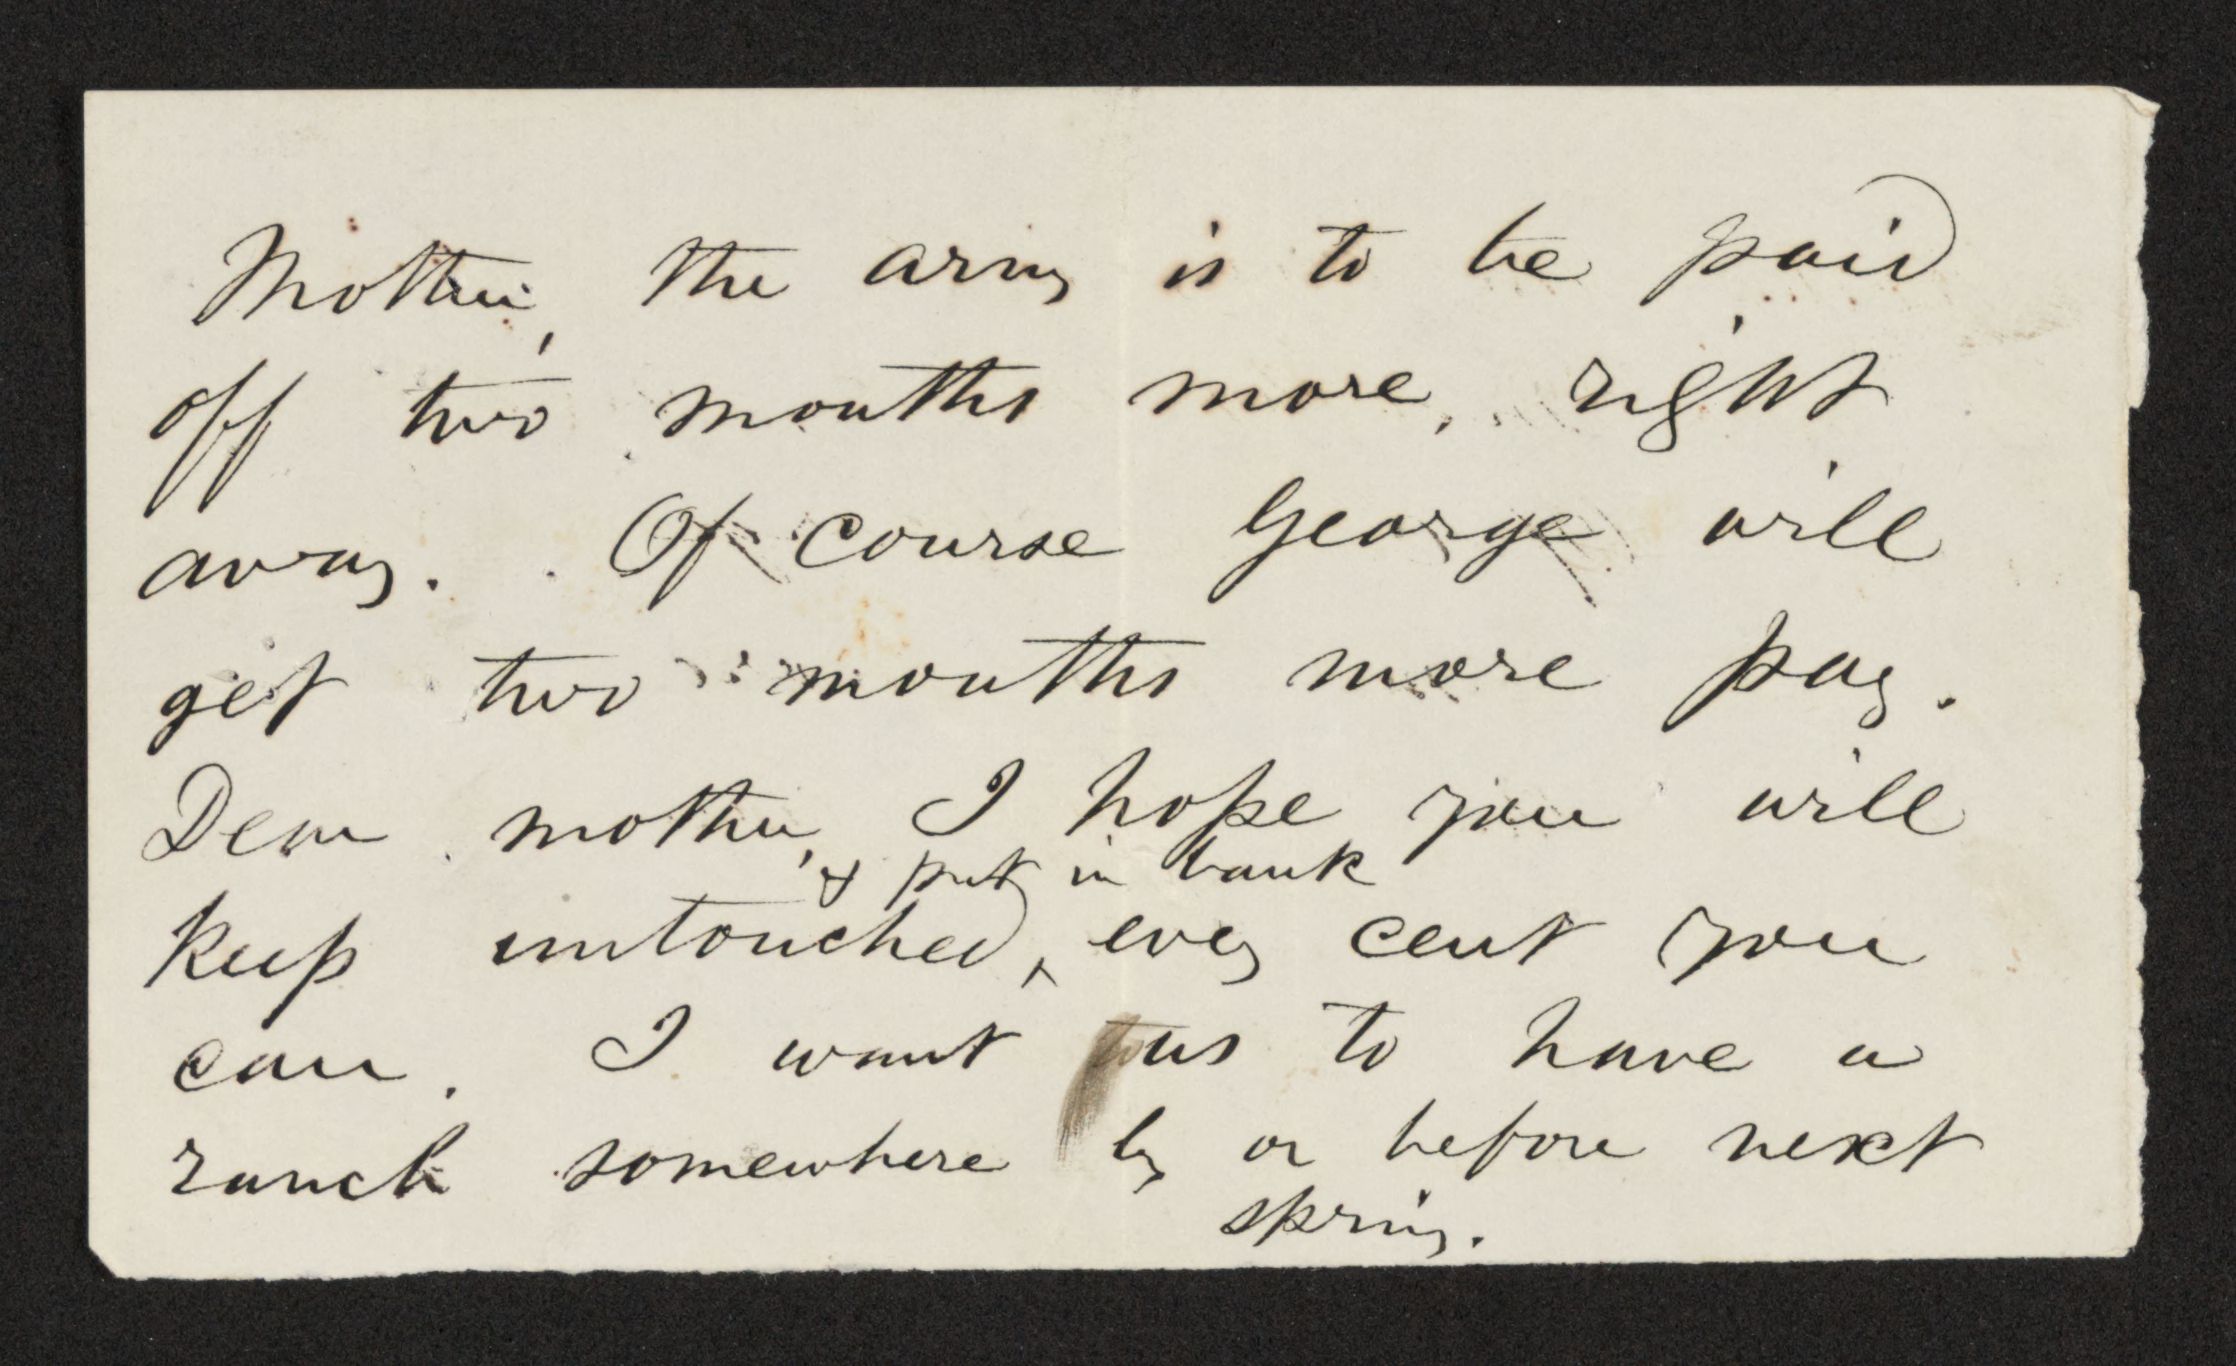 Mother, the army is to be paid
off two months more, right
away. Of course George will
get two months more pay.
Dear mother, I hope you will
& put in bank
keep untouched, ^ every cent you
can. I want us to have a
ranch somewhere by or before next
spring.